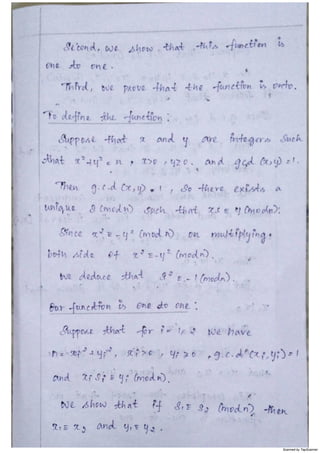 Second, we show that this function is
one to one.
Third, we prove that the function is onto.
To define the function :
Suppose that x and y are integers such
that x²+y² = n, x>0, y≥0. and g.c.d (x,y) = 1.
Then g.c.d (x,y) = 1, so there exists a
unique S (mod n) such that xs ≡ y (mod n).
Since x² ≡ -y² (mod n) on multiplying.
both side of x² ≡ -y² (mod n).
we deduce that S² ≡ -1 (mod n).
Our function is one to one :
Suppose that for i = 1, 2 we have
n = xi² + yi², xi>0, yi≥0, g.c.d (xi, yi) = 1
and xi si ≡ yi (mod n).
We show that if S1 ≡ S2 (mod n) then
x1 = x2 and y1 = y2.
Scanned by TapScanner